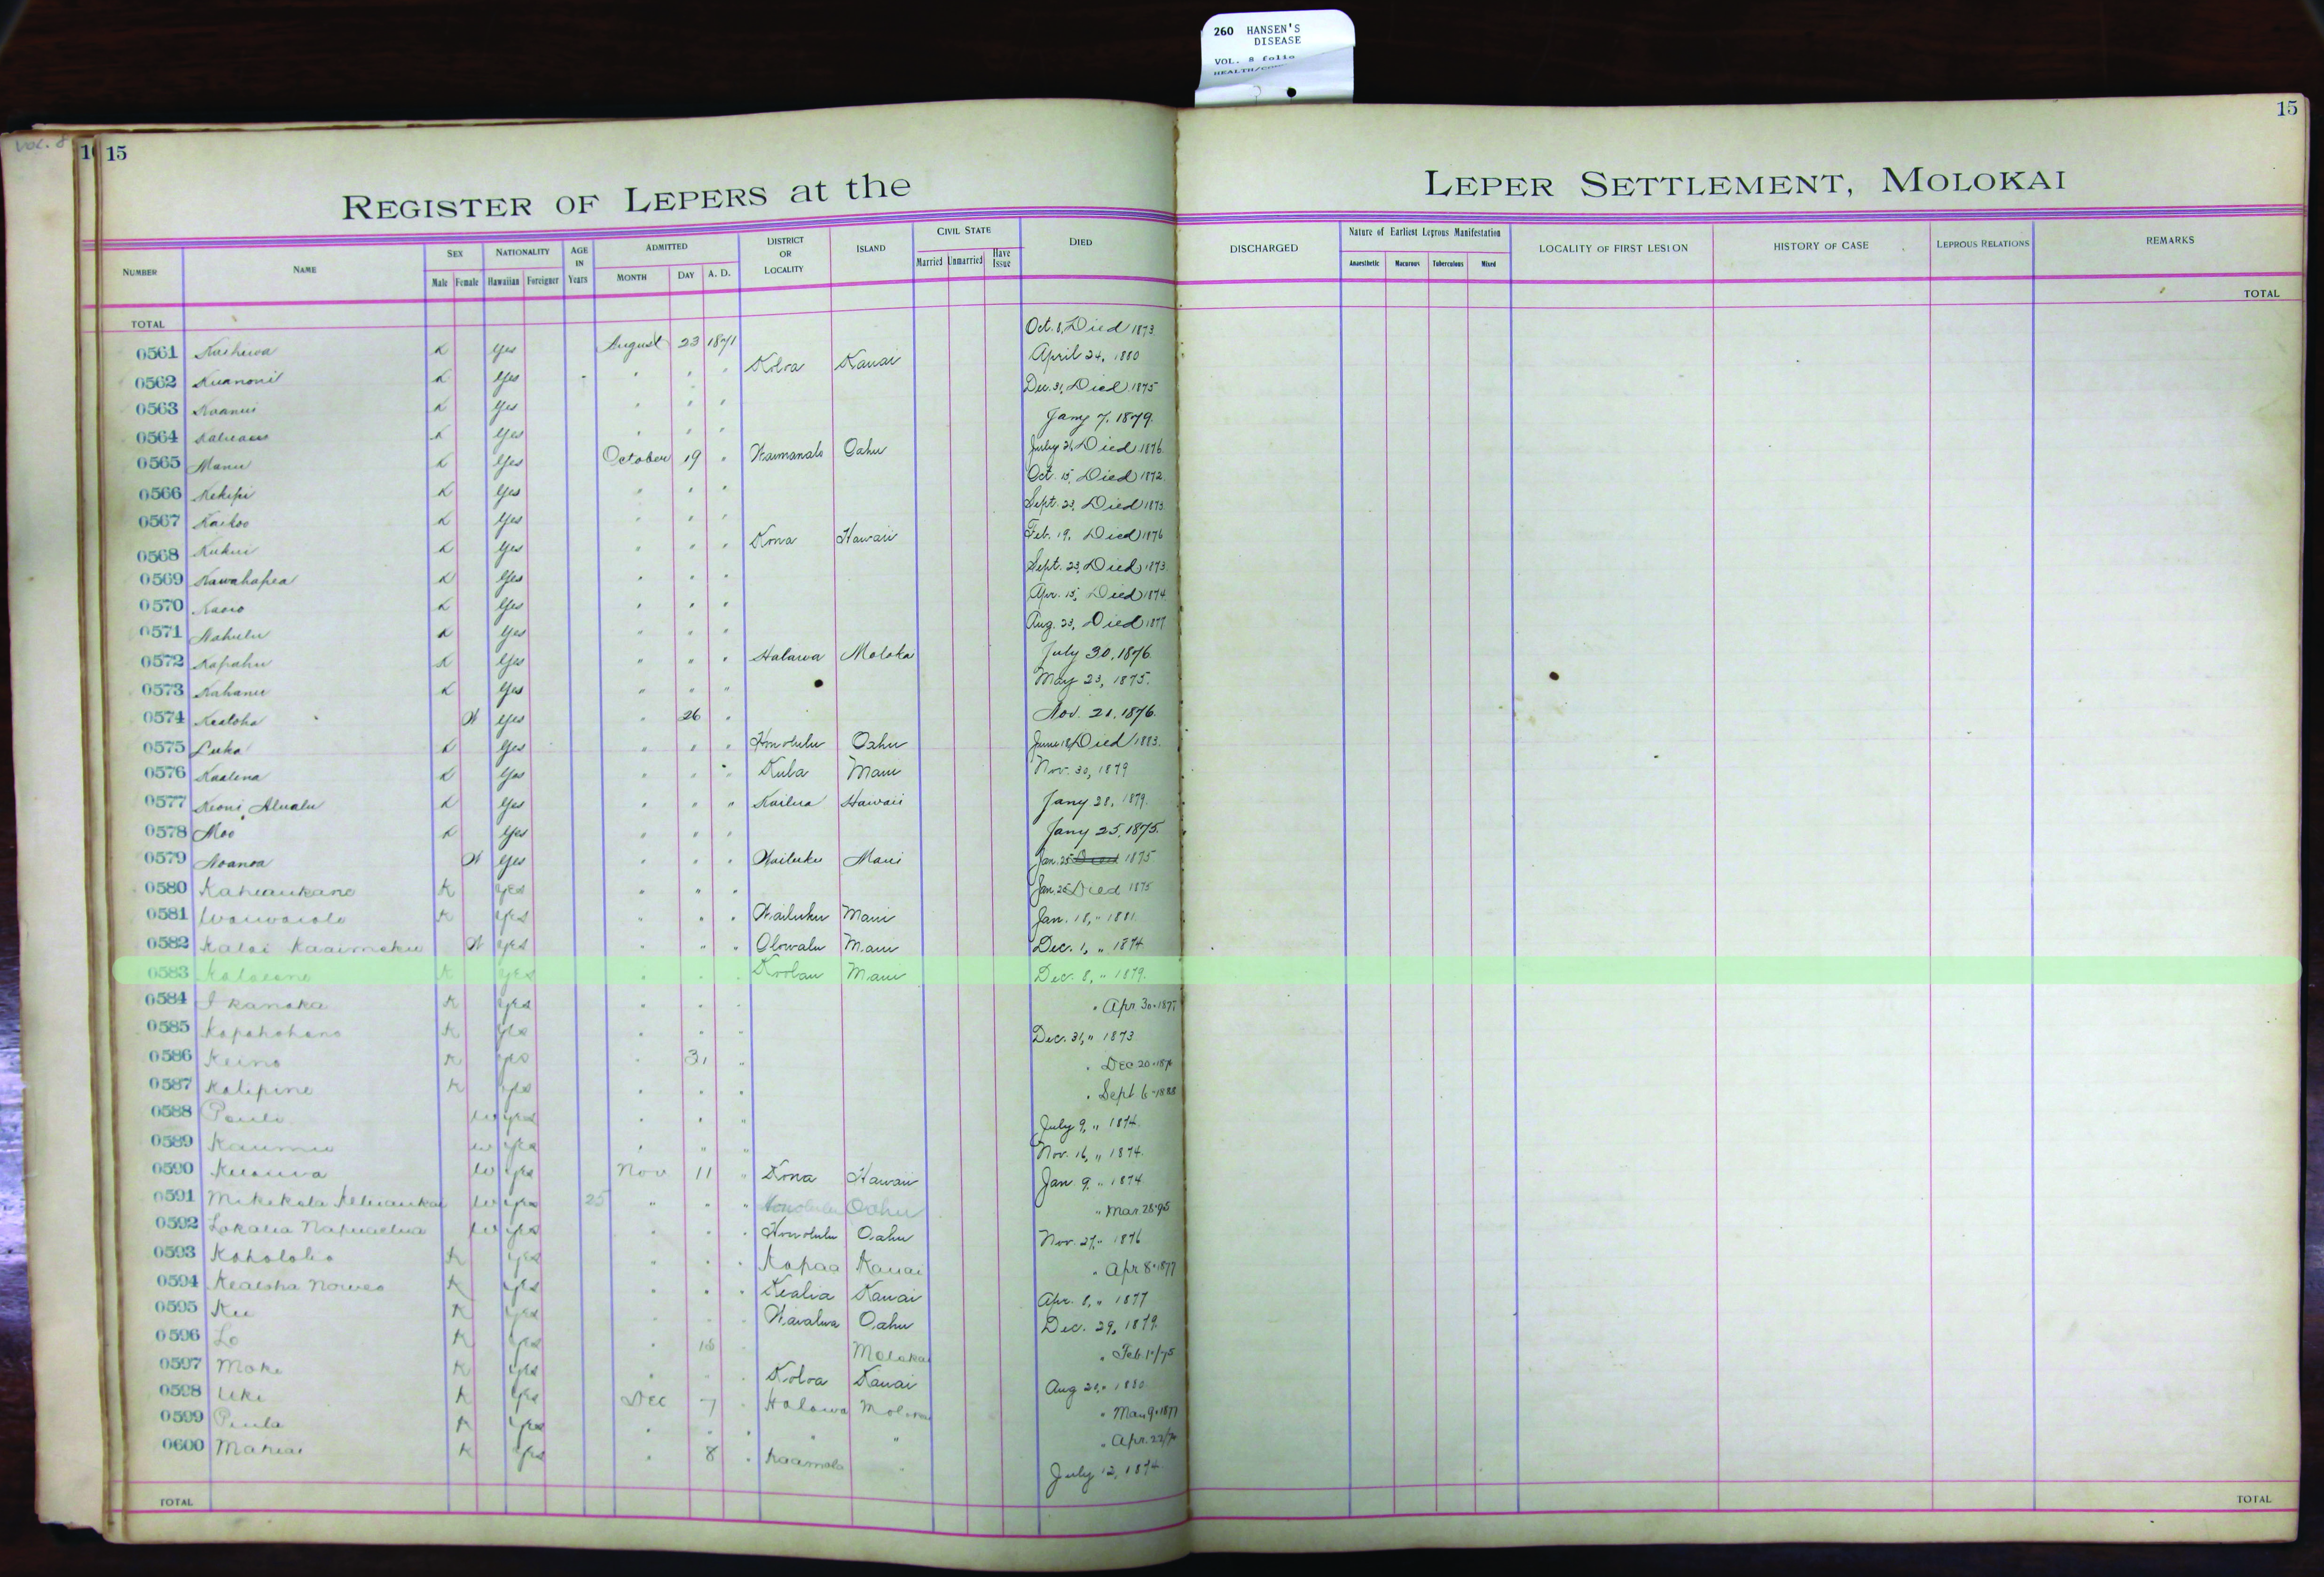 260 HANSEN'S
DISEASE
VOL. 8 folio
VOL. 8
15
15
REGISTER OF LEPERS at the LEPER SETTLEMENT, MOLOKAI
NUMBER NAME SEX Male Female NATIONALITY Hawaiian Foreigner AGE IN Years ADMITTED MONTH DAY A. D. DISTRICT OR LOCALITY ISLAND CIVIL STATE Married Unmarried Have Issue DIED DISCHARGED Nature of Earliest Leprous Manifestation Anaesthetic Macurous Tuberculous Mixed LOCALITY OF FIRST LESION HISTORY OF CASE LEPROUS RELATIONS REMARKS
TOTAL TOTAL
0561 K Yes August 23 1871 Oct. 8, Died 1873
0562 K Yes " " " Koloa Kauai April 24, 1880
0563 K Yes " " " Dec. 31, Died 1875
0564 K Yes " " " Jany 7, 1879
0565 Manu K Yes October 19 " Waimanalo Oahu July 21, Died 1876
0566 Kekipi K Yes " " " Oct. 15, Died 1872
0567 Kaikoo K Yes " " " Sept. 23, Died 1873
0568 Kukui K Yes " " " Kona Hawaii Feb. 19, Died 1876
0569 Kawahapea K Yes " " " Sept. 23, Died 1873
0570 K Yes " " " Apr. 15, Died 1874
0571 Nahulu K Yes " " " Aug. 23, Died 1877
0572 Kapahu K Yes " " " Halawa Moloka July 30, 1876
0573 Kahanu K Yes " " " May 23, 1875.
0574 Kealoha W Yes " 26 " Nov. 21, 1876.
0575 Luka K Yes " " " Honolulu Oahu June 18, Died 1883.
0576 Kaalena K Yes " " " Kula Maui Nov. 30, 1879
0577 Keoni Alualu K Yes " " " Kailua Hawaii Jany 28, 1879.
0578 Moo K Yes " " " Jany 25, 1875.
0579 Noanoa W Yes " " " Wailuku Maui Jan. 25 Died 1875
0580 Kaheaukano K Yes " " " Jan. 25 Died 1875
0581 Waiwaiole K Yes " " " Wailuku Maui Jan. 18, " 1881
0582 Kalai Kaaimoku W Yes " " " Olowalu Maui Dec. 1, " 1874
0583 K Yes " " " Koolau Maui Dec. 8, " 1879.
0584 I kanaka K Yes " " " " Apr 30 - 1877
0585 Kapahohano K Yes " " " Dec. 31, " 1873
0586 Keino K Yes " 31 " " Dec 20 -
0587 Kalipino K Yes " " " " Sept 6 - 1888
0588 Pauli W Yes " " " July 9, " 1874
0589 Kaumu W Yes " " " Nov. 16, " 1874
0590 W Yes Nov 11 " Kona Hawaii Jan 9, " 1874
0591 W Yes 25 " " " Honolulu Oahu " Mar. 28 - 95
0592 W Yes " " " Honolulu Oahu Nov. 27, " 1876
0593 Koholohio K Yes " " " Kapaa Kauai " Apr 8 - 1877
0594 Kealoha K Yes " " " Kealia Kauai Apr. 8, " 1877
0595 Ku K Yes " " " Waialua Oahu Dec. 29, 1879
0596 Lo K Yes " 18 " Molokai " Feb. 1"/75
0597 Moke K Yes " " " Koloa Kauai Aug 20, " 1880
0598 Uki K Yes Dec 7 " Halawa Molokai " Mar. 9 - 1877
0599 Paula K Yes " " " " " " Apr. 22/
0600 Mahiai K Yes " 8 " Kaamola " July 12, 1874
TOTAL TOTAL